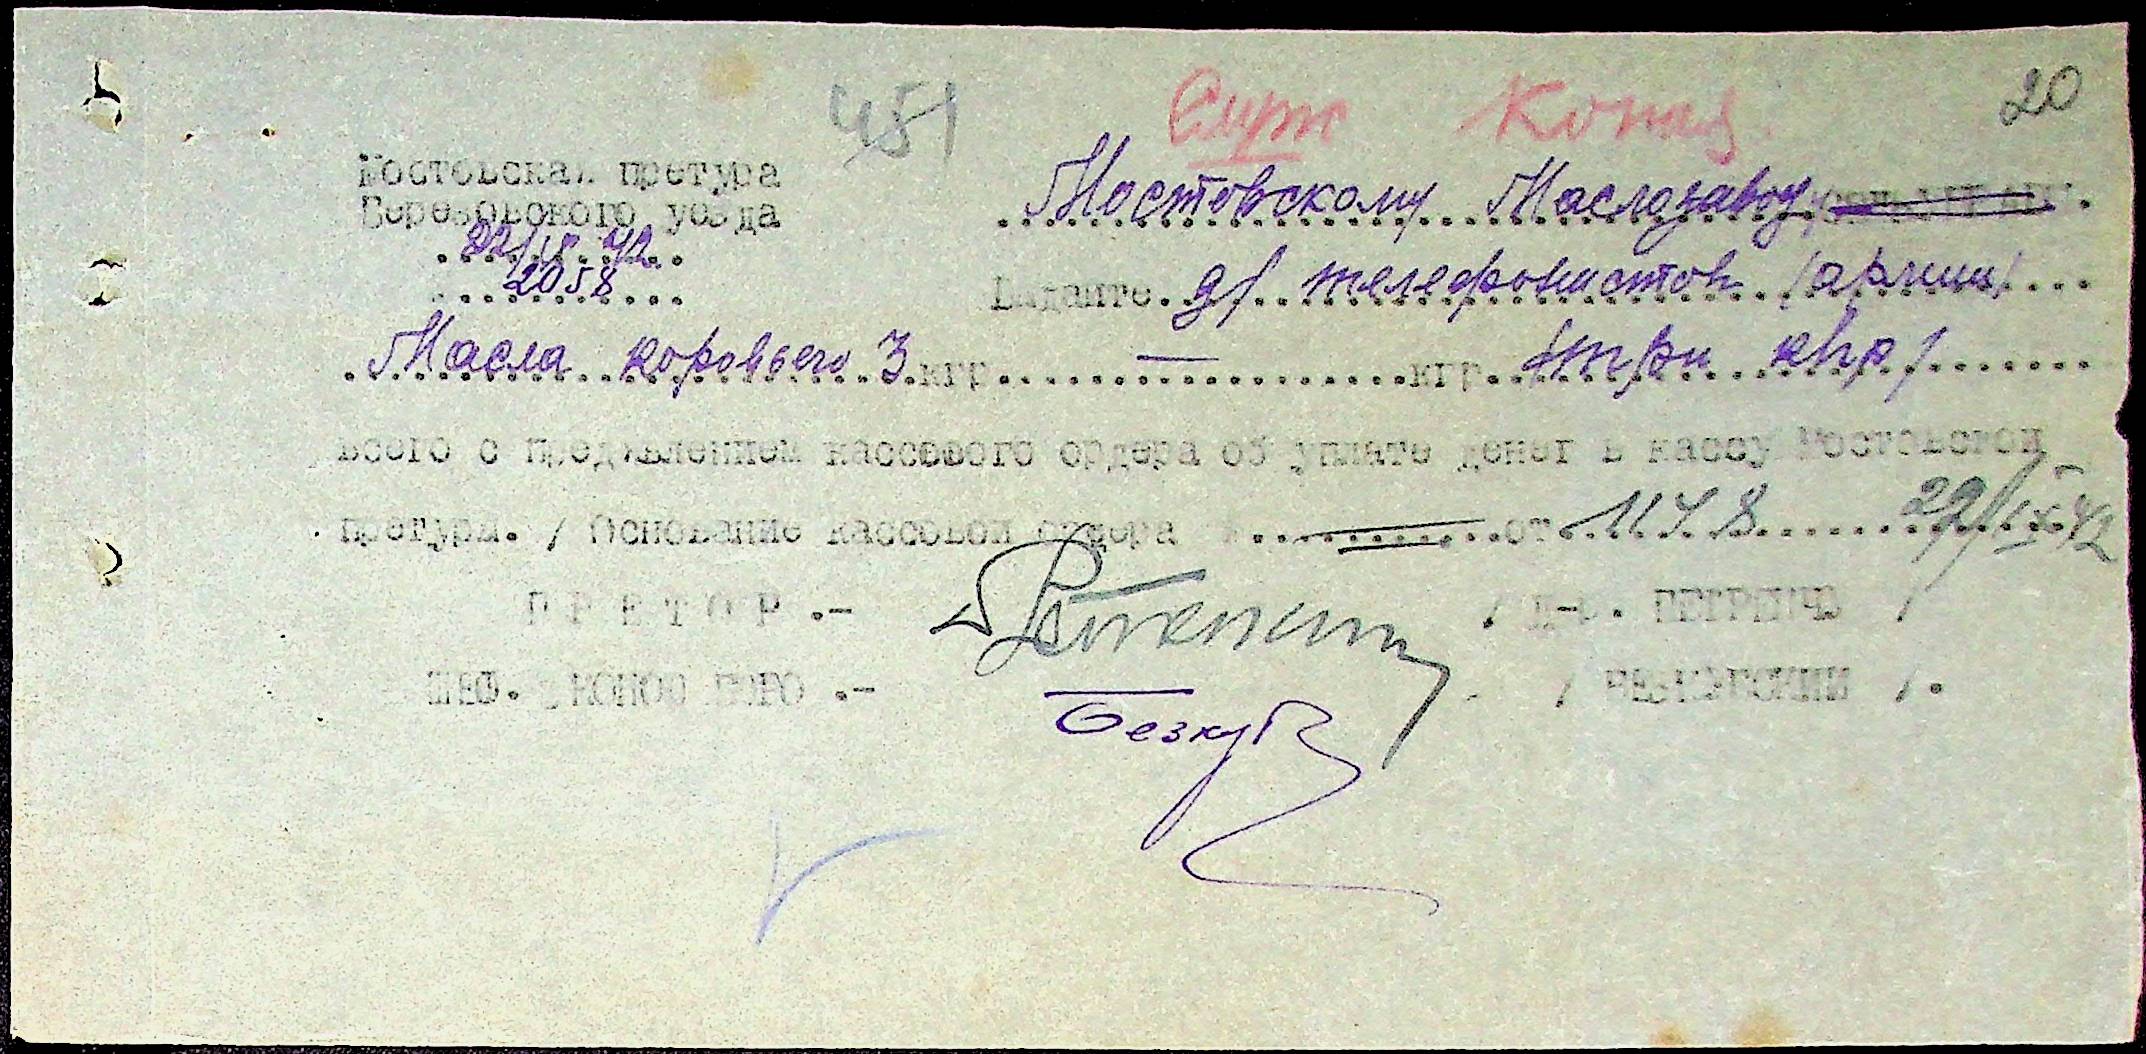 451
20
Мостовская претура
Березовского уезда
22/IX 42
2058
Мостовскому Маслозаводу
Выдайте д/ телефонистов /армии/
Масла коровьего 3 кгр. — кгр. /три кгр/
всего с предявлением кассового ордера об уплате денег в кассу Мостовской
претуры. / Основание кассовой ордера от 1148 22/IX 42
ПРЕТОР.-
ШЕФ. ЭКОНОМ БЮРО.-
Безкур